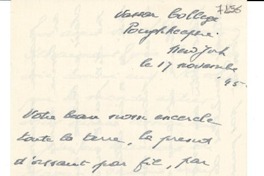 7456
Vassar College
Poughkeepsie.
New York
le 17 novembre
'45.
Votre beau nom encercle
toute la terre, le
par fil, par